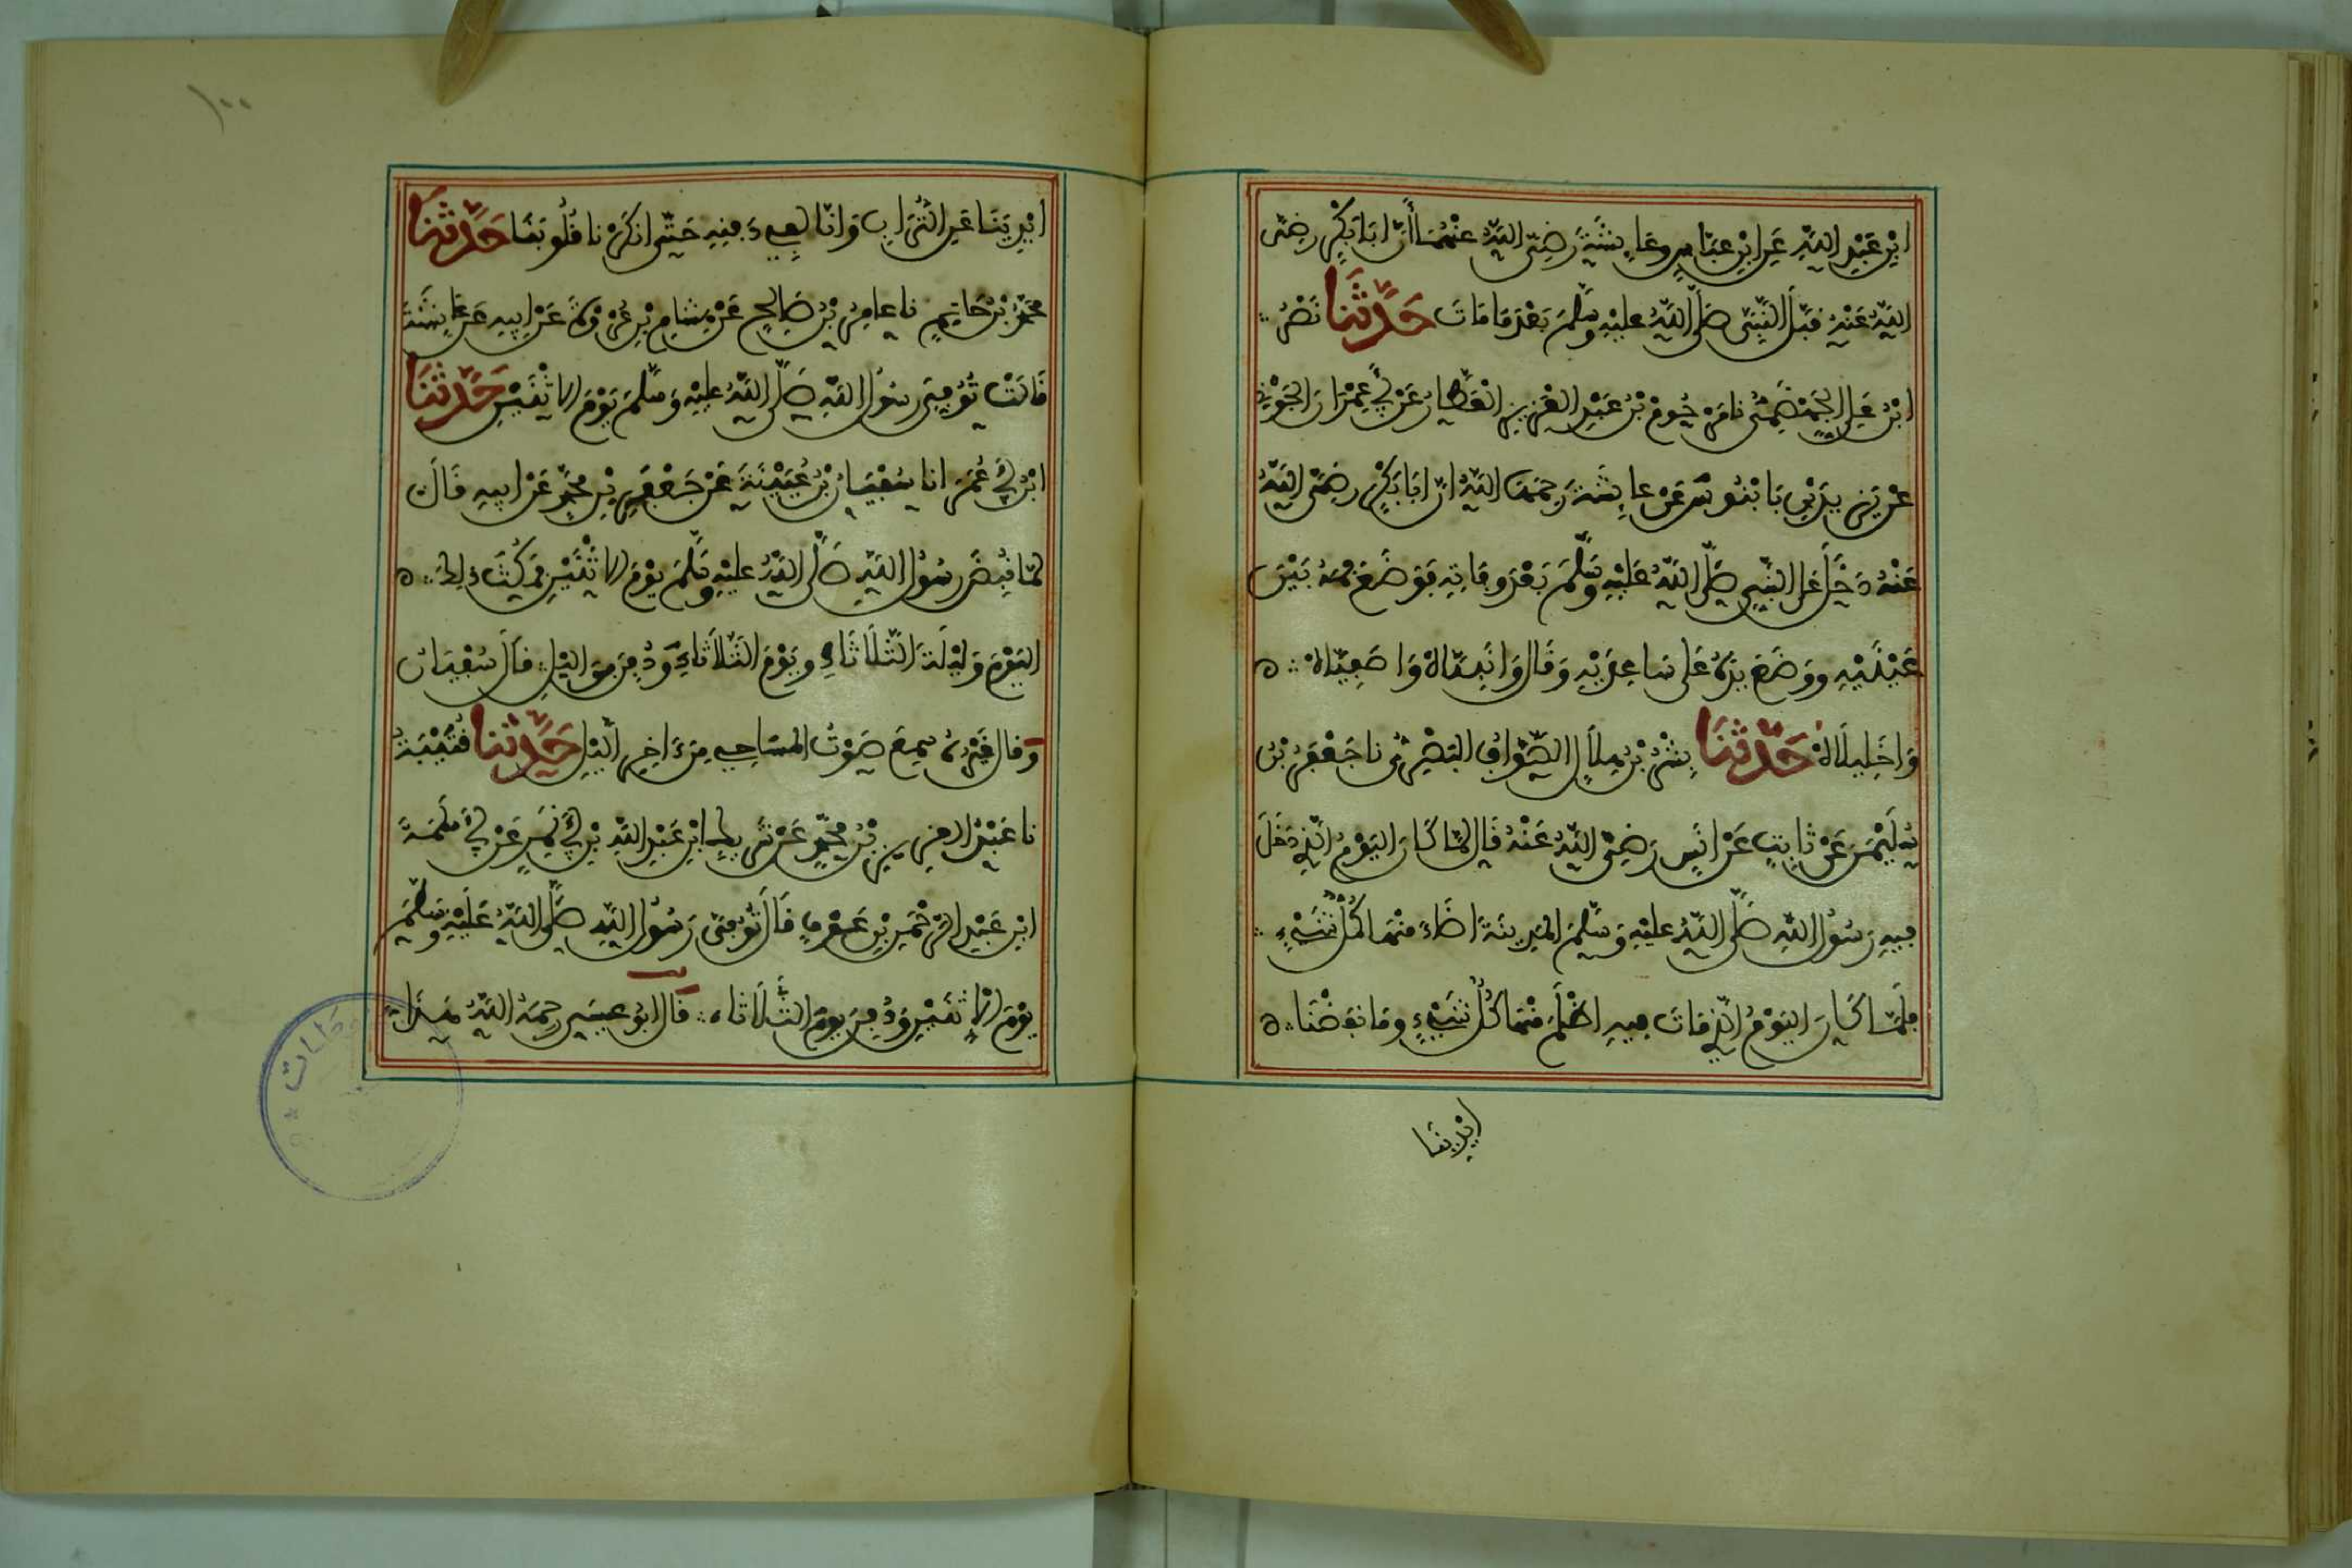 ابْنِ عَبْدِ اللَّهِ عَنِ ابْنِ عَبَّاسٍ وعَائِشَةَ رَضِيَ اللَّهُ عنْهُمَا أَنَّ ابَا بَكْرٍ رضِيَ
اللَّهُ عَنْهُ قَبَّلَ النَّبِيَّ صَلَّى اللَّهُ عليْهِ وسَلَّمَ بَعْدَ مَا مَاتَ حَدَّثَنَا نَصْرُ
ابْنُ عَلِيٍّ الجَهْضَمِيُّ نا مَرْحُومُ بْنُ عَبْدِ العَزِيزِ العَطَّارُ عَنْ أَبِي عِمْرَانَ الجَوْنِيِّ
عَنْ يَزِيدَ بْنِ بَابْنُوسَ عَنْ عَائِشَةَ رَحِمَهَا اللَّهُ انَّ ابَا بَكْرٍ رضِيَ اللَّهُ
عَنْهُ دَخَلَ عَلَى النَّبِيِّ صَلَّى اللَّهُ عَلَيْهِ وسَلَّمَ بَعْدَ وفَاتِهِ فَوَضَعَ فمَهُ بَيْنَ
عَيْنَيْهِ ووَضَعَ يَدَهُ عَلَى سَاعِدَيْهِ وَقَالَ وَانَبِيَّاهْ وَاصَفِيَّاهْ
وَاخَلِيلَاهْ حَدَّثَنَا بِشْرُ بْنُ هِلَالٍ الصَّوَّافُ البَصْرِيُّ نا جَعْفَرُ بْنُ
سُلَيْمَنَ عَنْ ثَابِتٍ عَنْ انَسٍ رَضِيَ اللَّهُ عَنْهُ قَالَ لمَّا كَانَ اليَوْمُ الَّذِي دَخَلَ
فِيهِ رَسُولُ اللَّهِ صَلَّى اللَّهُ عليْهِ وَسَلَّمَ المَدِينَةَ اضَاءَ منْهَا كُلُّ شَيْءٍ
فَلَمَّا كَانَ اليَوْمُ الَّذِي مَاتَ فِيهِ اظْلَمَ مِنْهَا كُلُّ شَيْءٍ ومَا نَفَضْنَا
ايْدِيَنَا
١٠٠
ايْدِيَنَا عَنِ التُّرَابِ وَانَّا لَفِي دَفْنِهِ حَتَّى انكَرْنَا قُلُوبَنَا حَدَّثَنَا
محَمَّدُ بْنُ حَاتِمٍ نا عامِرُ بْنُ صَالِحٍ عَنْ هِشَامِ بْنِ عُرْوَةَ عَنْ ابِيهِ عَنْ عَائِشَةَ
قَالَتْ تُوُفِّيَ رسُولُ اللَّهِ صَلَّى اللَّهُ عليْهِ وَسَلَّمَ يَوْمَ الاثْنَيْنِ حَدَّثَنَا
ابْنُ أَبِي عُمَرَ انا سُفْيَانُ بْنُ عُيَيْنَةَ عَنْ جَعْفَرِ بْنِ محَمَّدٍ عَنْ ابِيهِ قَالَ
لمَّا قُبِضَ رسُولُ اللَّهِ صَلَّى اللَّهُ عليْهِ وسَلَّمَ يوْمَ الاثْنَيْنِ فمَكُثَ ذلكَ
اليَوْمَ وَلَيْلَةَ الثَّلَاثَاءِ ويَوْمَ الثَّلَاثَاءِ وَدُفِنَ مِنَ اليْلِ قَالَ سُفْيَانُ
وَقالَ غَيْرُهُ سمِعَ صَوْتُ المسَاحِي مِنْ ءَاخِرِ اللَّيْلِ حَدَّثَنَا قُتَيْبَةُ
نا عَبْدُ العَزِيزِ بْنُ محَمَّدٍ عَنْ شَرِيكِ ابْنِ عَبْدِ اللَّهِ بْنِ أَبِي نَمِرٍ عَنْ أَبِي سَلَمَةَ
ابْنِ عَبْدِ الرَّحْمَنِ بْنِ عَوْفٍ قَالَ تُوُفِّيَ رَسُولُ اللَّهِ صَلَّى اللَّهُ عَلَيْهِ وسَلَّمَ
يوْمَ الاثْنَيْنِ وَدُفِنَ يومَ الثَّلَاثَاء قَالَ ابُو عِيسَى رحِمَهُ اللَّهُ هَذَا